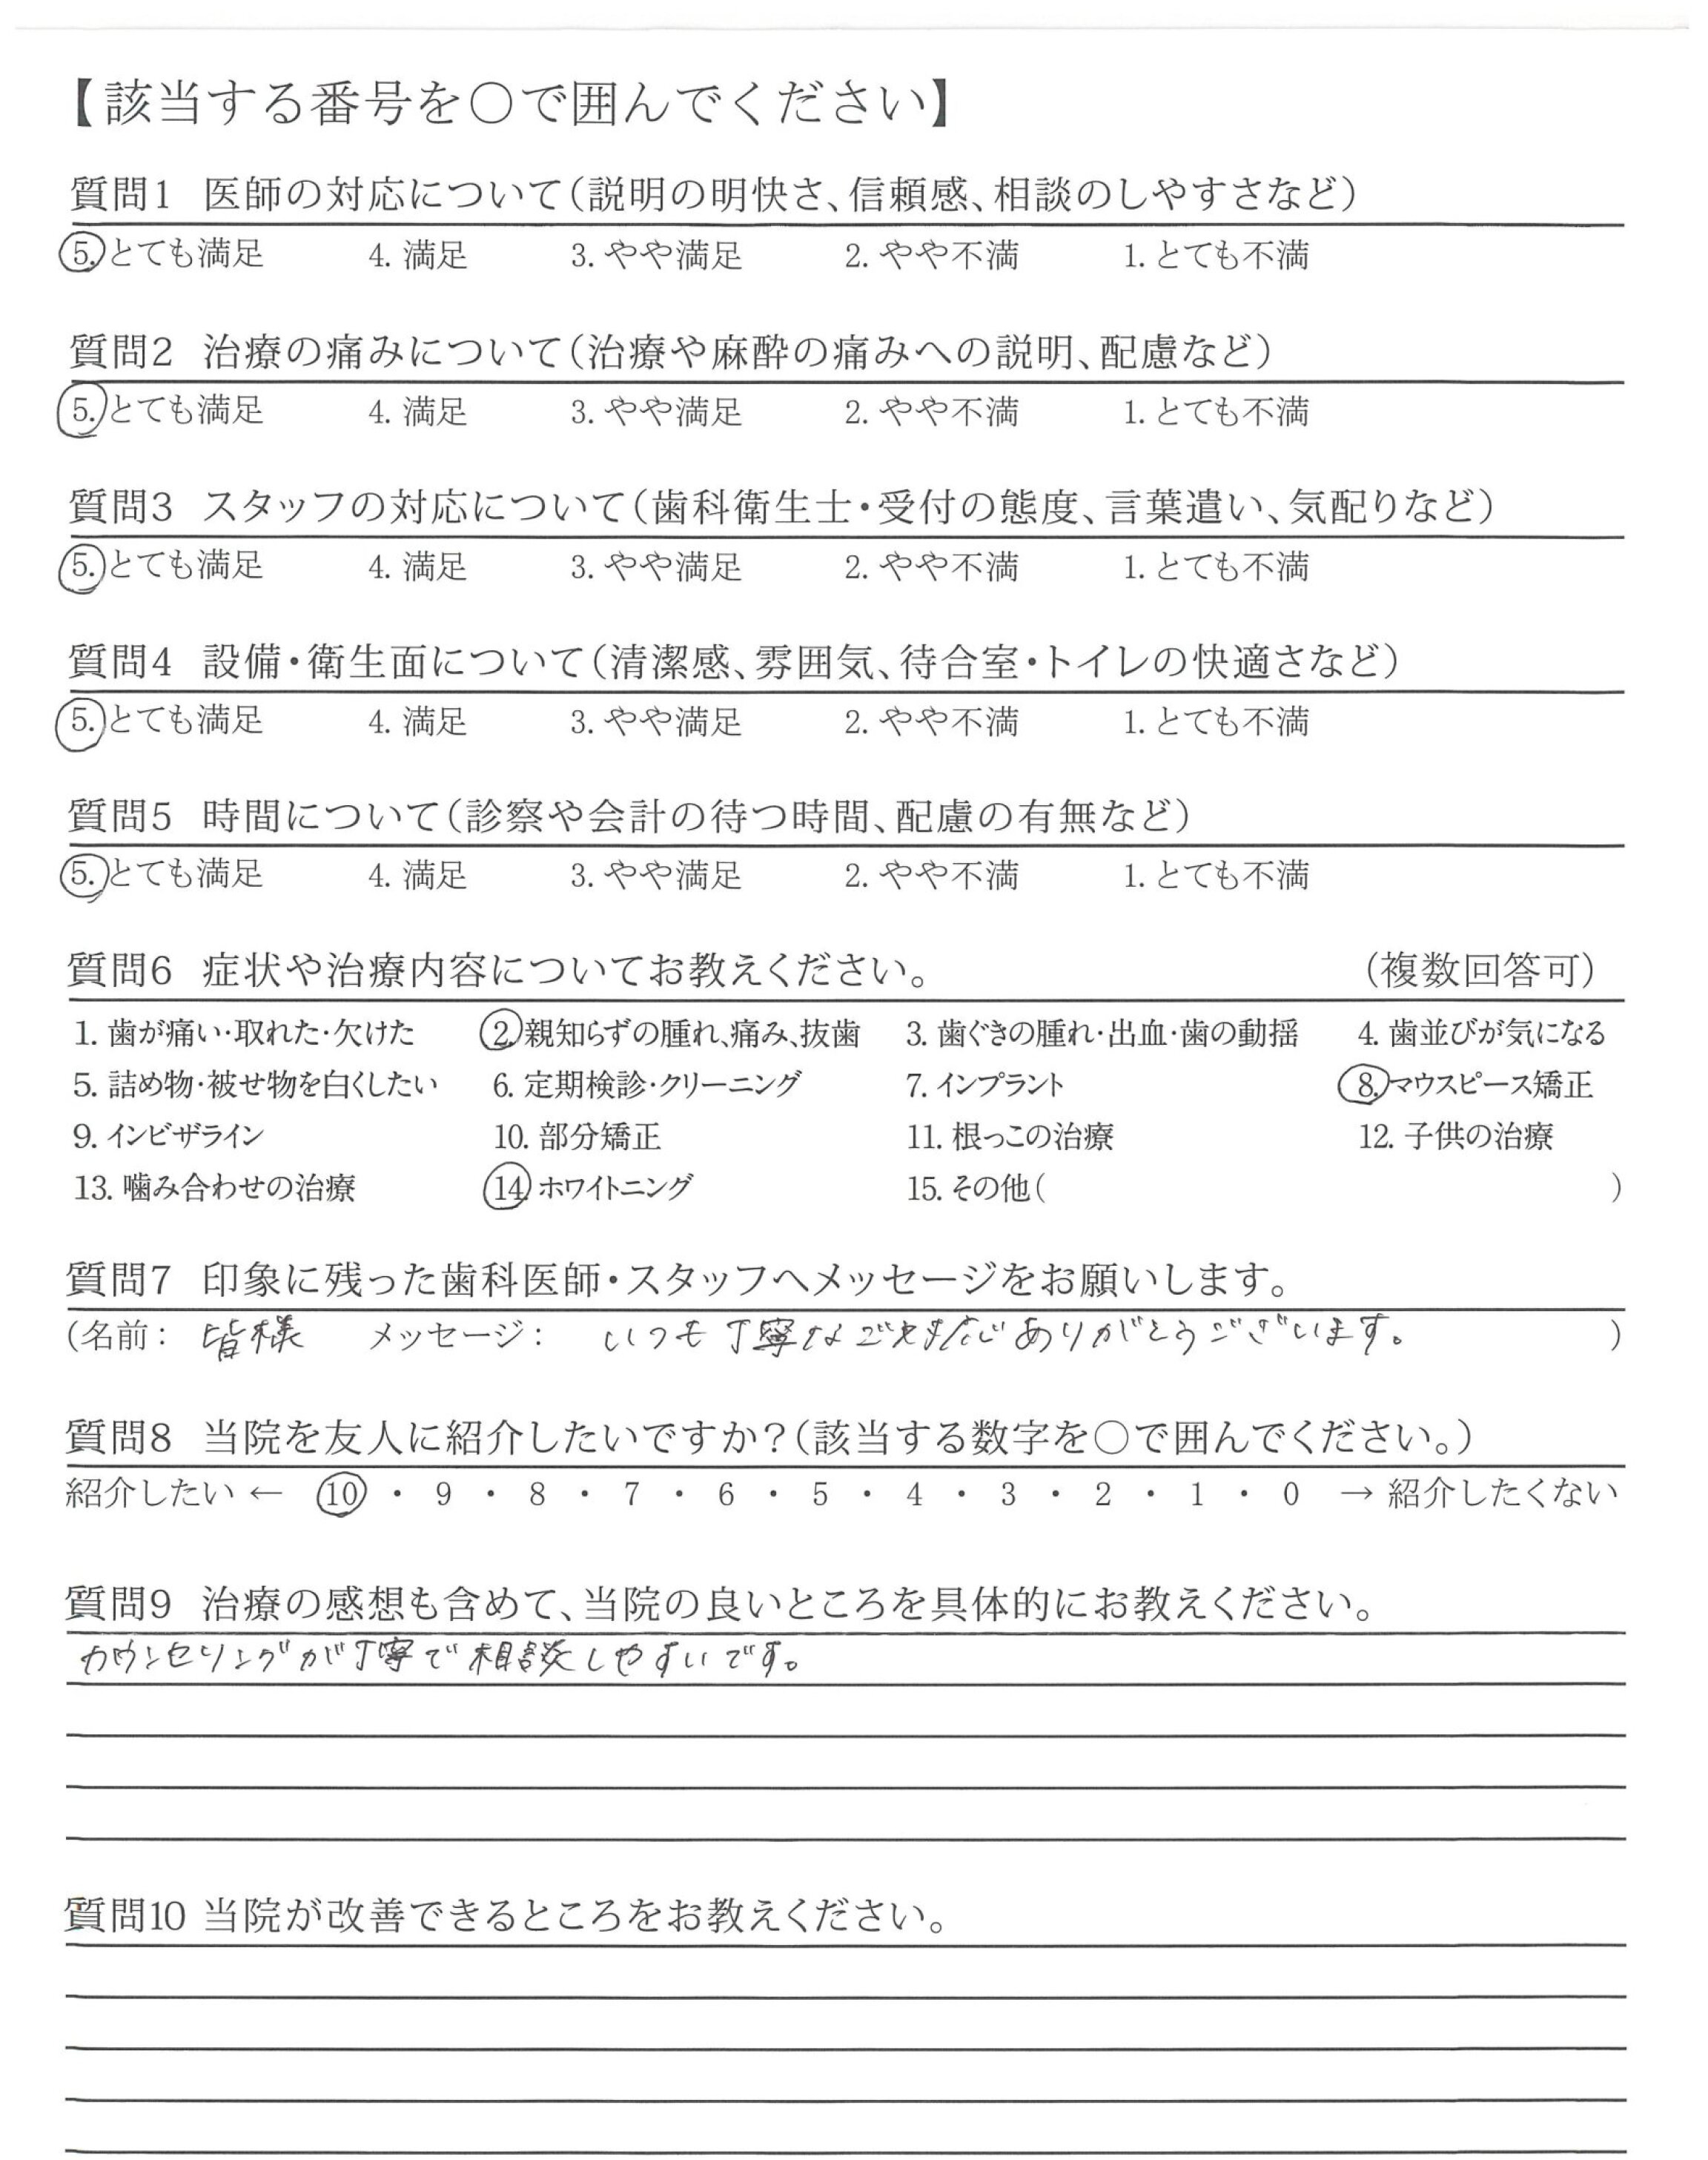 【該当する番号を○で囲んでください】
質問1 医師の対応について(説明の明快さ、信頼感、相談のしやすさなど)
5. とても満足 4. 満足 3. やや満足 2. やや不満 1. とても不満
質問2 治療の痛みについて(治療や麻酔の痛みへの説明、配慮など)
5. とても満足 4. 満足 3. やや満足 2. やや不満 1. とても不満
質問3 スタッフの対応について(歯科衛生士・受付の態度、言葉遣い、気配りなど)
5. とても満足 4. 満足 3. やや満足 2. やや不満 1. とても不満
質問4 設備・衛生面について(清潔感、雰囲気、待合室・トイレの快適さなど)
5. とても満足 4. 満足 3. やや満足 2. やや不満 1. とても不満
質問5 時間について(診察や会計の待つ時間、配慮の有無など)
5. とても満足 4. 満足 3. やや満足 2. やや不満 1. とても不満
質問6 症状や治療内容についてお教えください。 (複数回答可)
1. 歯が痛い・取れた・欠けた 2. 親知らずの腫れ、痛み、抜歯 3. 歯ぐきの腫れ・出血・歯の動揺 4. 歯並びが気になる
5. 詰め物・被せ物を白くしたい 6. 定期検診・クリーニング 7. インプラント 8. マウスピース矯正
9. インビザライン 10. 部分矯正 11. 根っこの治療 12. 子供の治療
13. 噛み合わせの治療 14. ホワイトニング 15. その他( )
質問7 印象に残った歯科医師・スタッフへメッセージをお願いします。
(名前: 皆様 メッセージ: いつも丁寧なご対応ありがとうございます。 )
質問8 当院を友人に紹介したいですか?(該当する数字を○で囲んでください。)
紹介したい ← 10 ・ 9 ・ 8 ・ 7 ・ 6 ・ 5 ・ 4 ・ 3 ・ 2 ・ 1 ・ 0 → 紹介したくない
質問9 治療の感想も含めて、当院の良いところを具体的にお教えください。
カウンセリングが丁寧で相談しやすいです。
質問10 当院が改善できるところをお教えください。